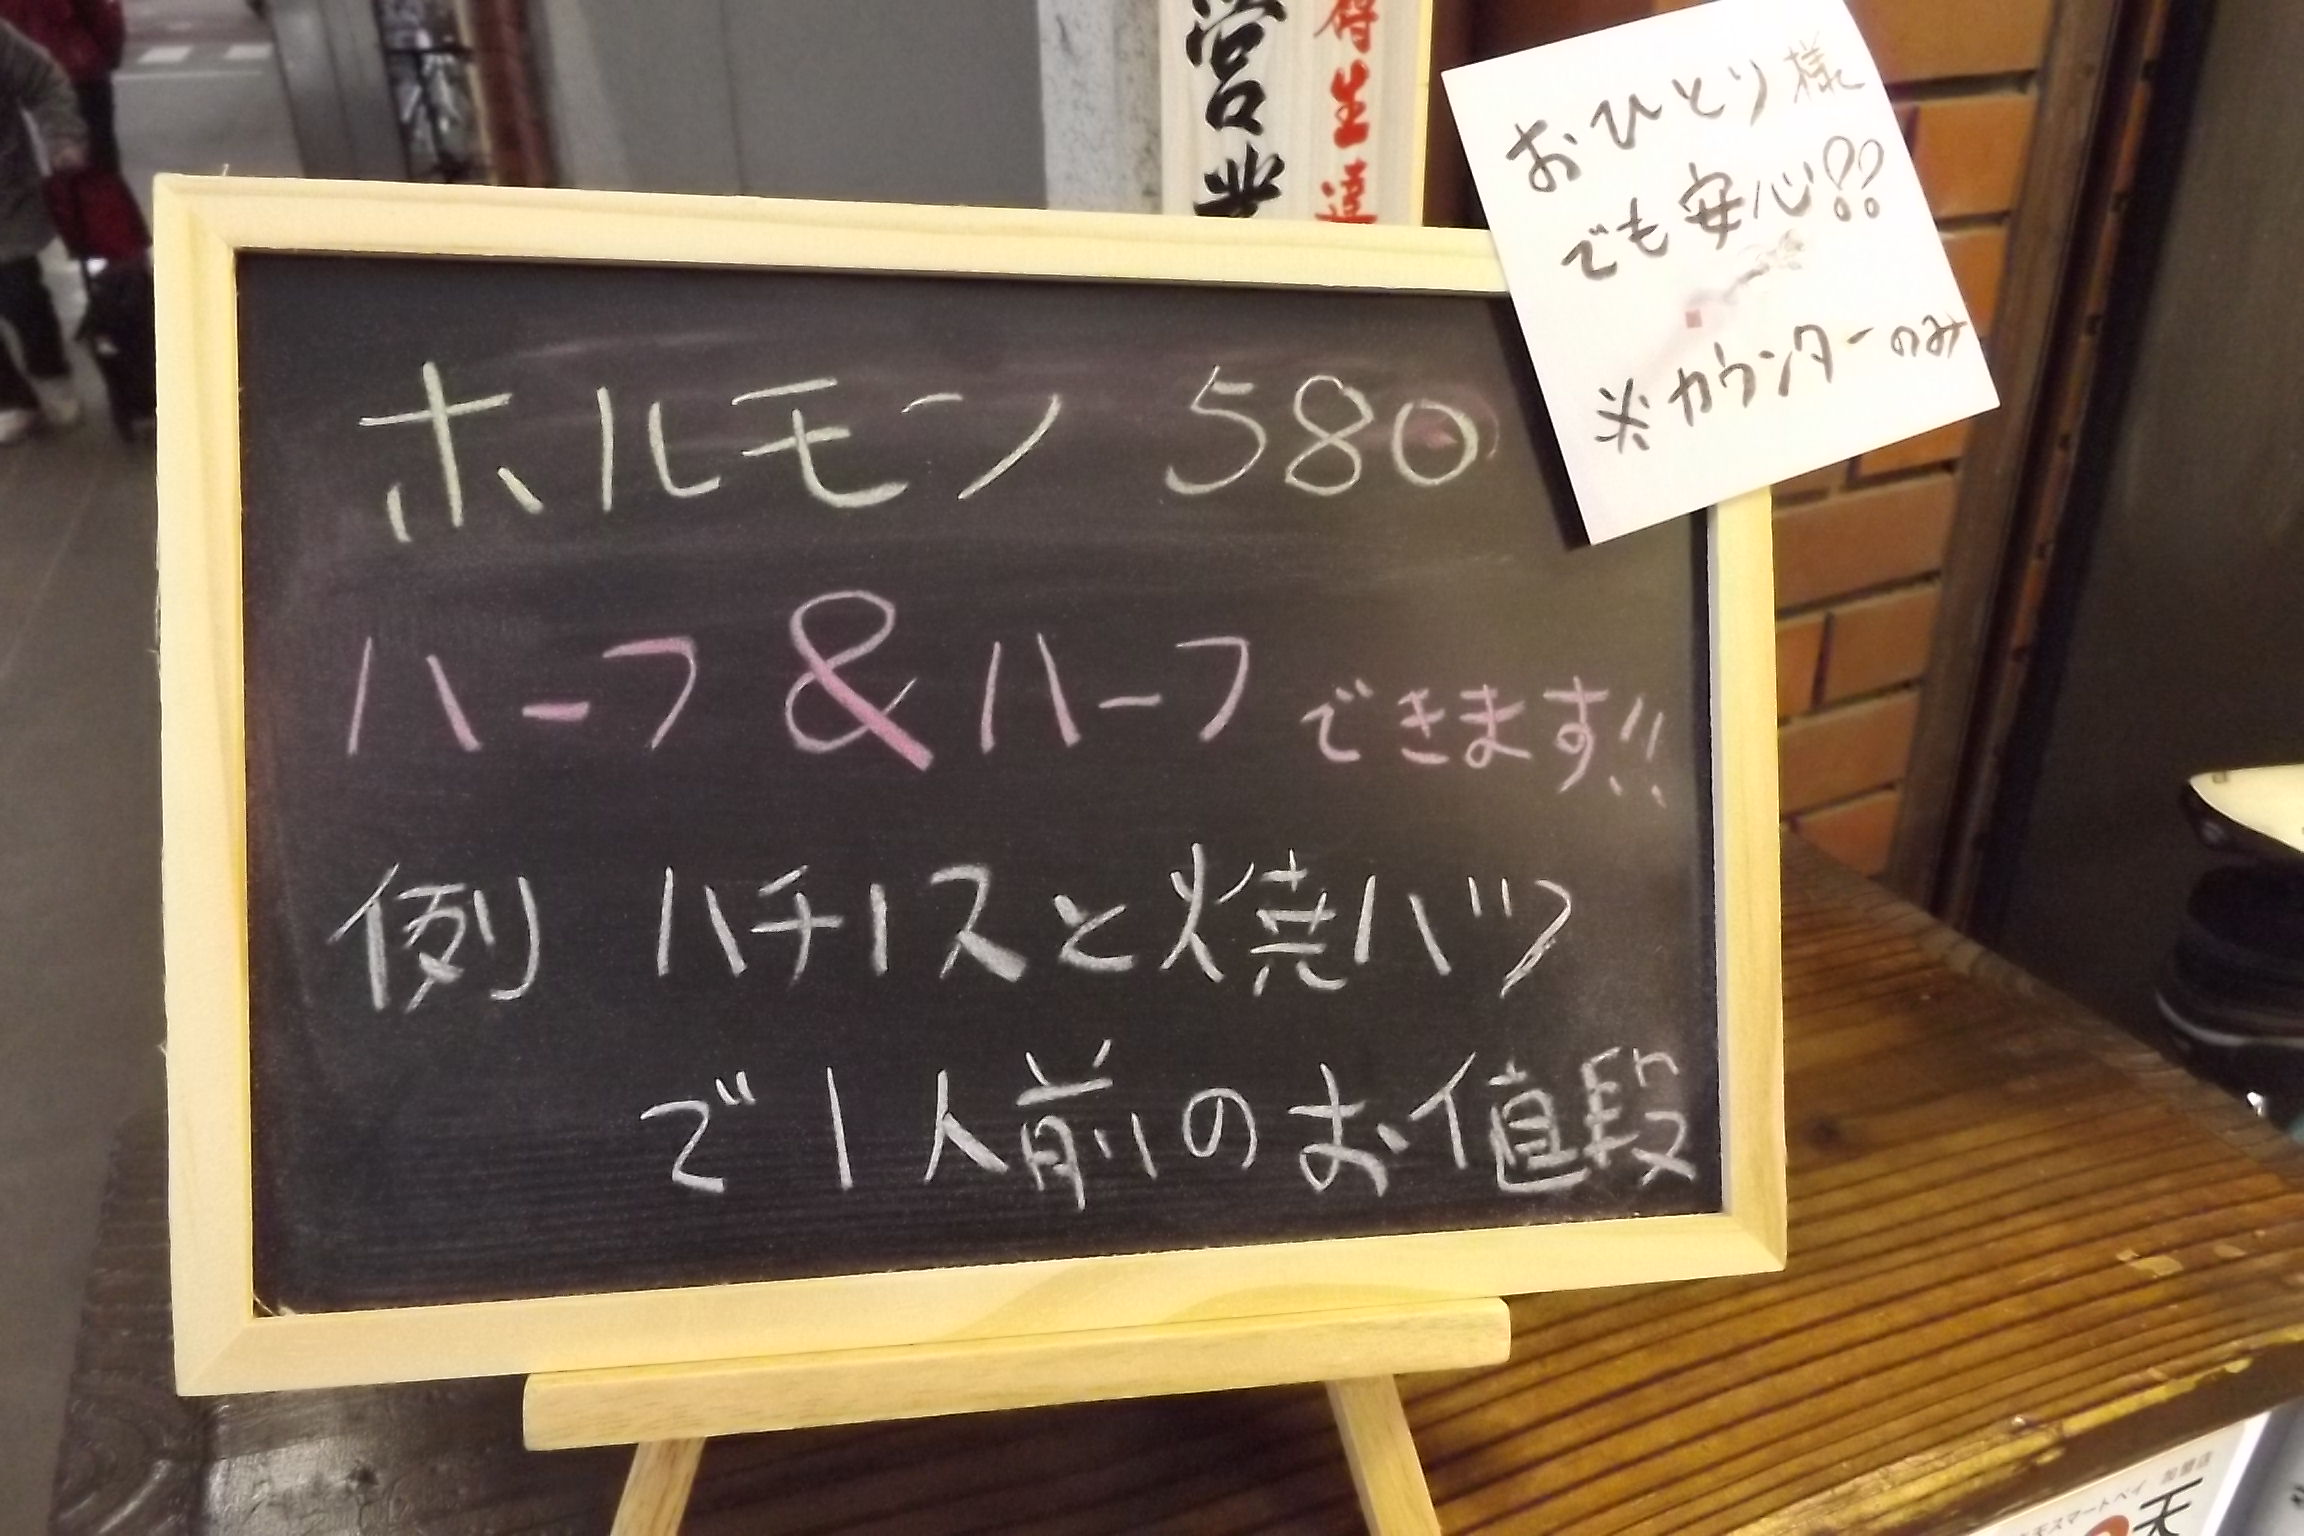 営業
得生達
おひとり様
でも安心!!
※カウンターのみ
ホルモン 580
ハーフ&ハーフできます!!
例 ハチノスと焼ハツ
で1人前のお値段